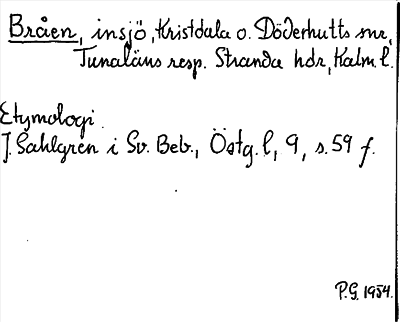 Bråen, insjö, Kristdala o. Döderhutts snr,
Tunaläns resp. Stranda hdr, Kalm. l.
Etymologi.
J. Sahlgren i Sv. Beb., Östg. l, 9, s. 59 f.
P.G. 1954.